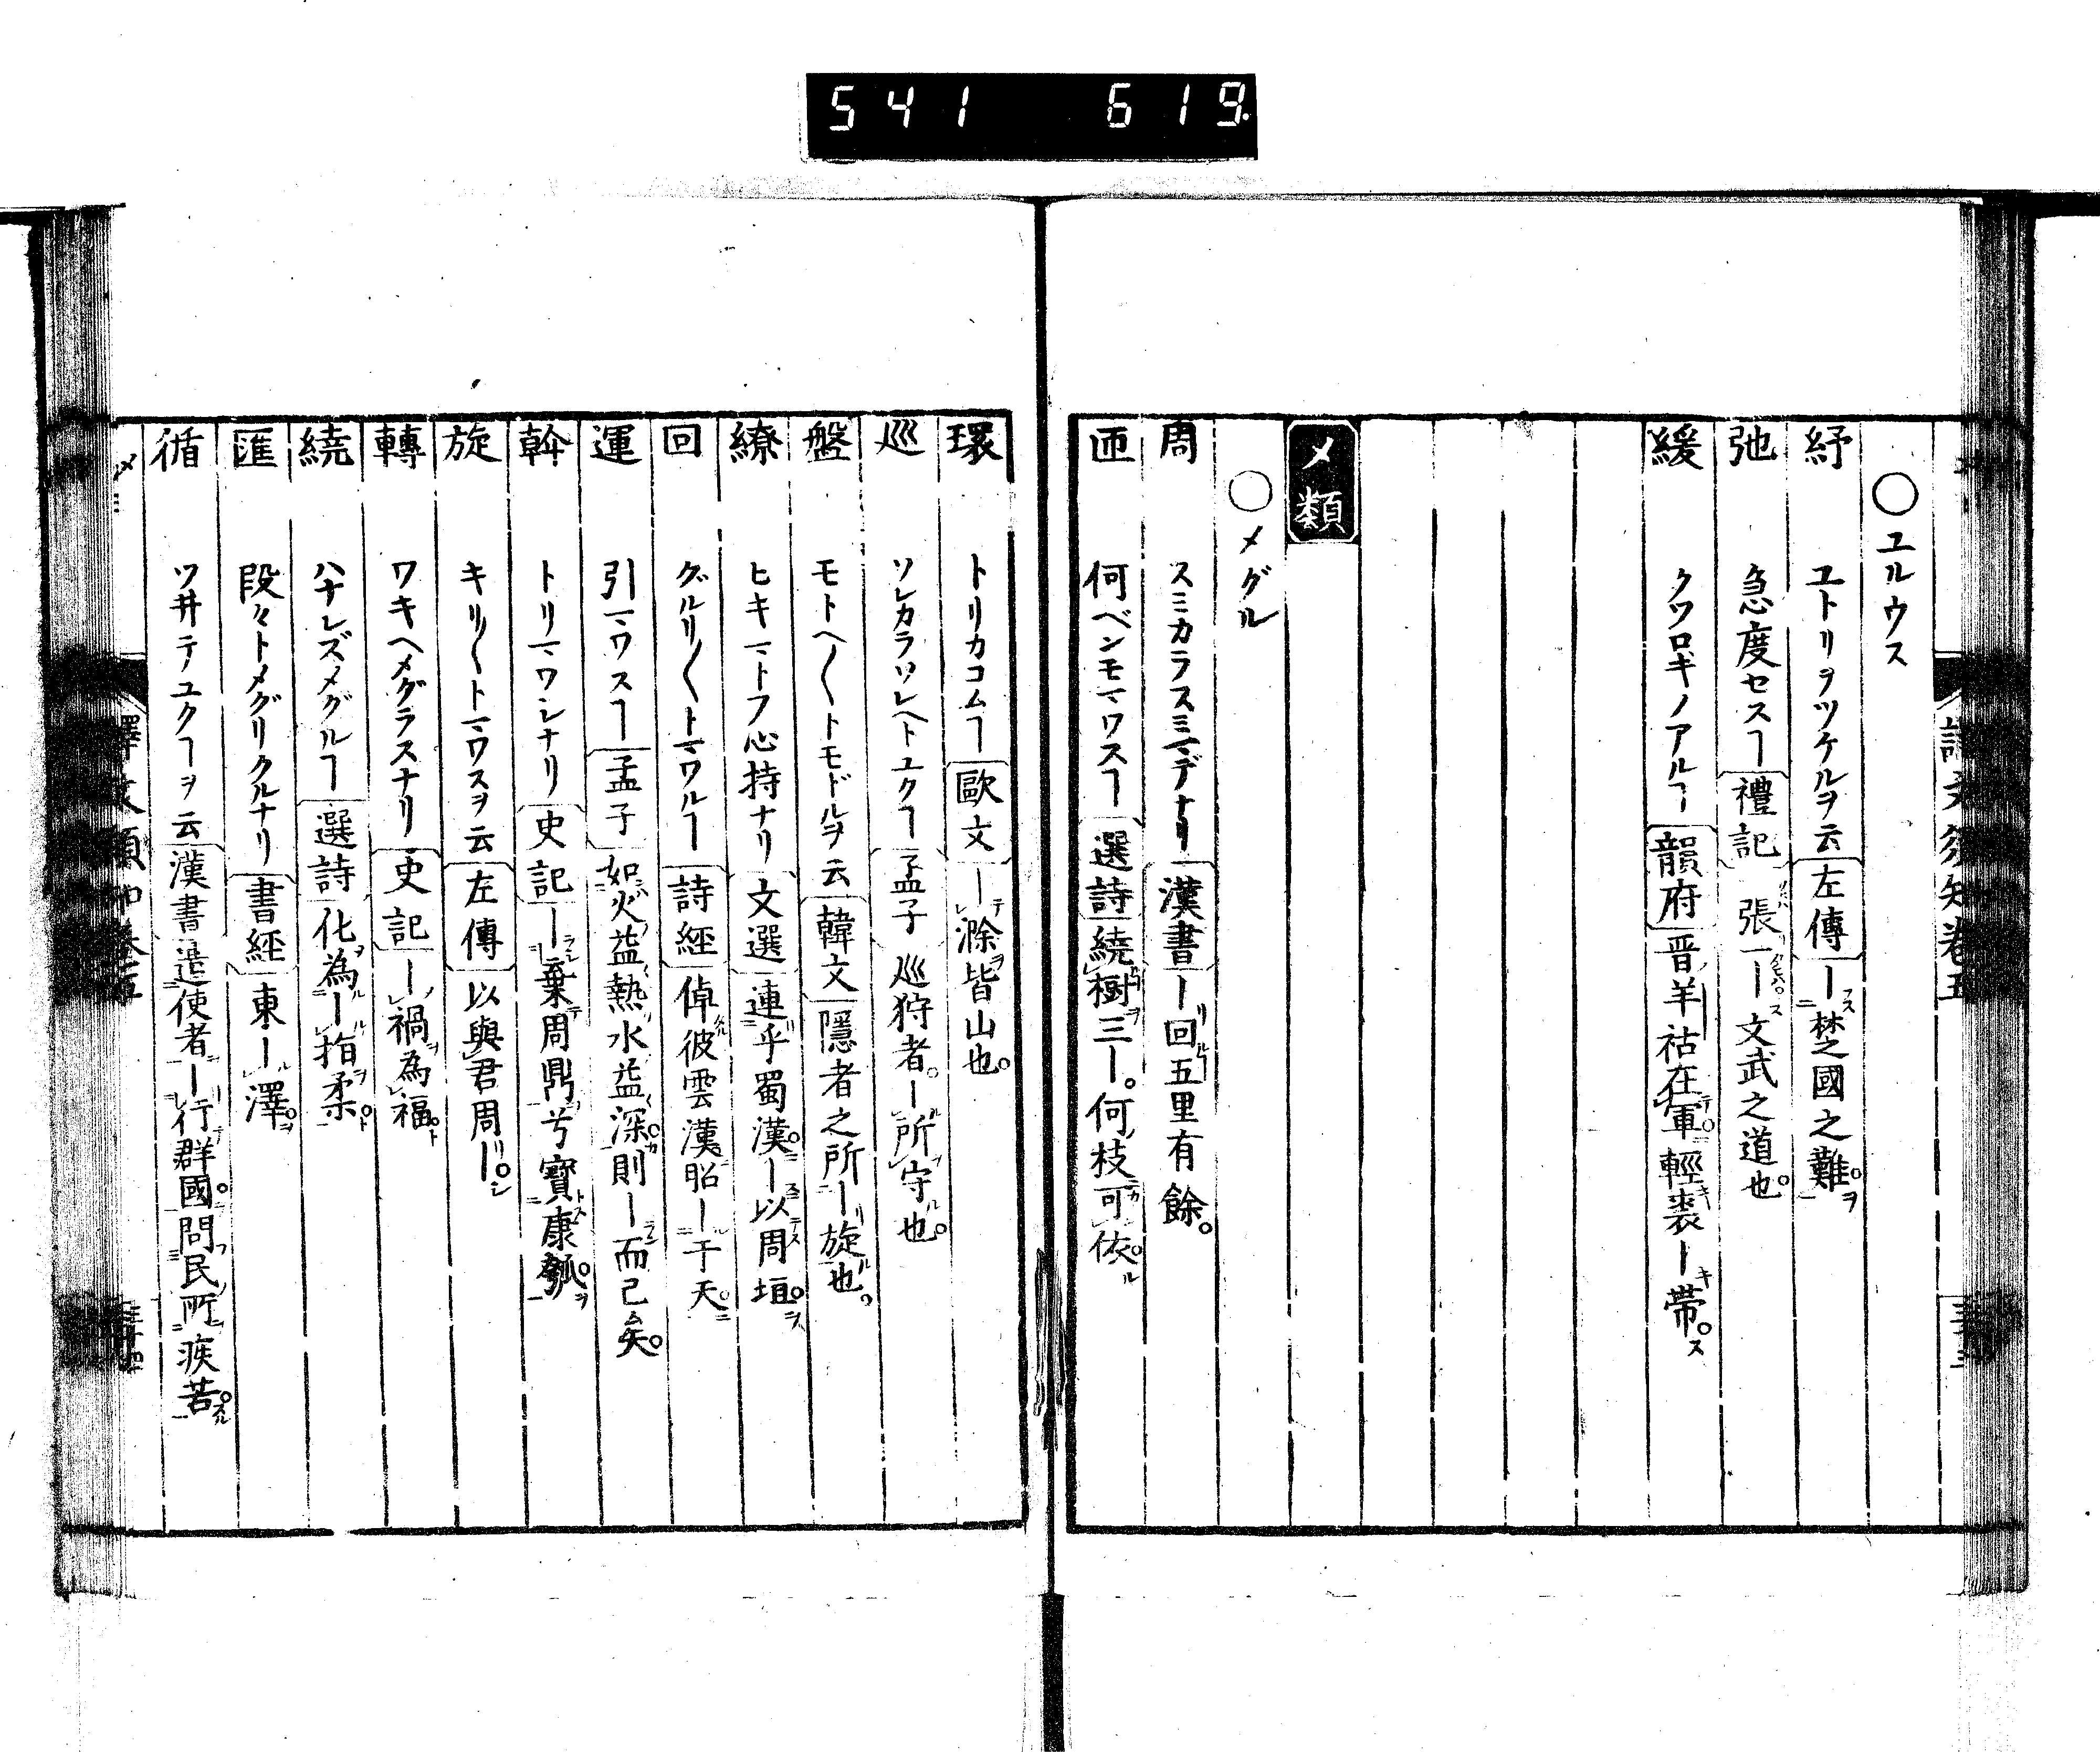 541 619.
譯文須知卷五
○ユルウス
紓 ユトリヲツケルヲ云 左傳 ー楚國之難ヲ
弛 急度セスヿ 禮記 張一ー文武之道也
緩 クワロギノアルヿ 韻府 晋羊祜在軍輕裘ー帶ス
メ類
○メグル
周 スミカラスミマデナリ 漢書 ー回五里有餘
匝 何ベンモマワスヿ 選詩 繞樹三ー。何枝可依
環 トリカコムヿ 歐文 ー滁皆山也
巡 ソレカラソレヘトユクヿ 孟子 巡狩者。ー所守也
盤 モトヘ〱トモドルヲ云 韓文 隱者之所ー旋也
繚 ヒキマトフ心持ナリ 文選 連乎蜀漢ー以周垣
回 グルリ〱トマワルヿ 詩經 倬彼雲漢昭ー于天
運 引マワスヿ 孟子 如火益熱水益深則ー而已矣
斡 トリマワシナリ 史記 ー棄周鼎兮寶康瓠
旋 キリ〱トマワスヲ云 左傳 以與君周ー
轉 ワキヘメグラスナリ 史記 ー禍為福
繞 ハナレズメグルヿ 選詩 化為ー指柔
匯 段々トメグリクルナリ 書經 東ー澤
循 ツ井テユクヿヲ云 漢書 遣使者ー行群國問民所疾苦
譯文須知卷五